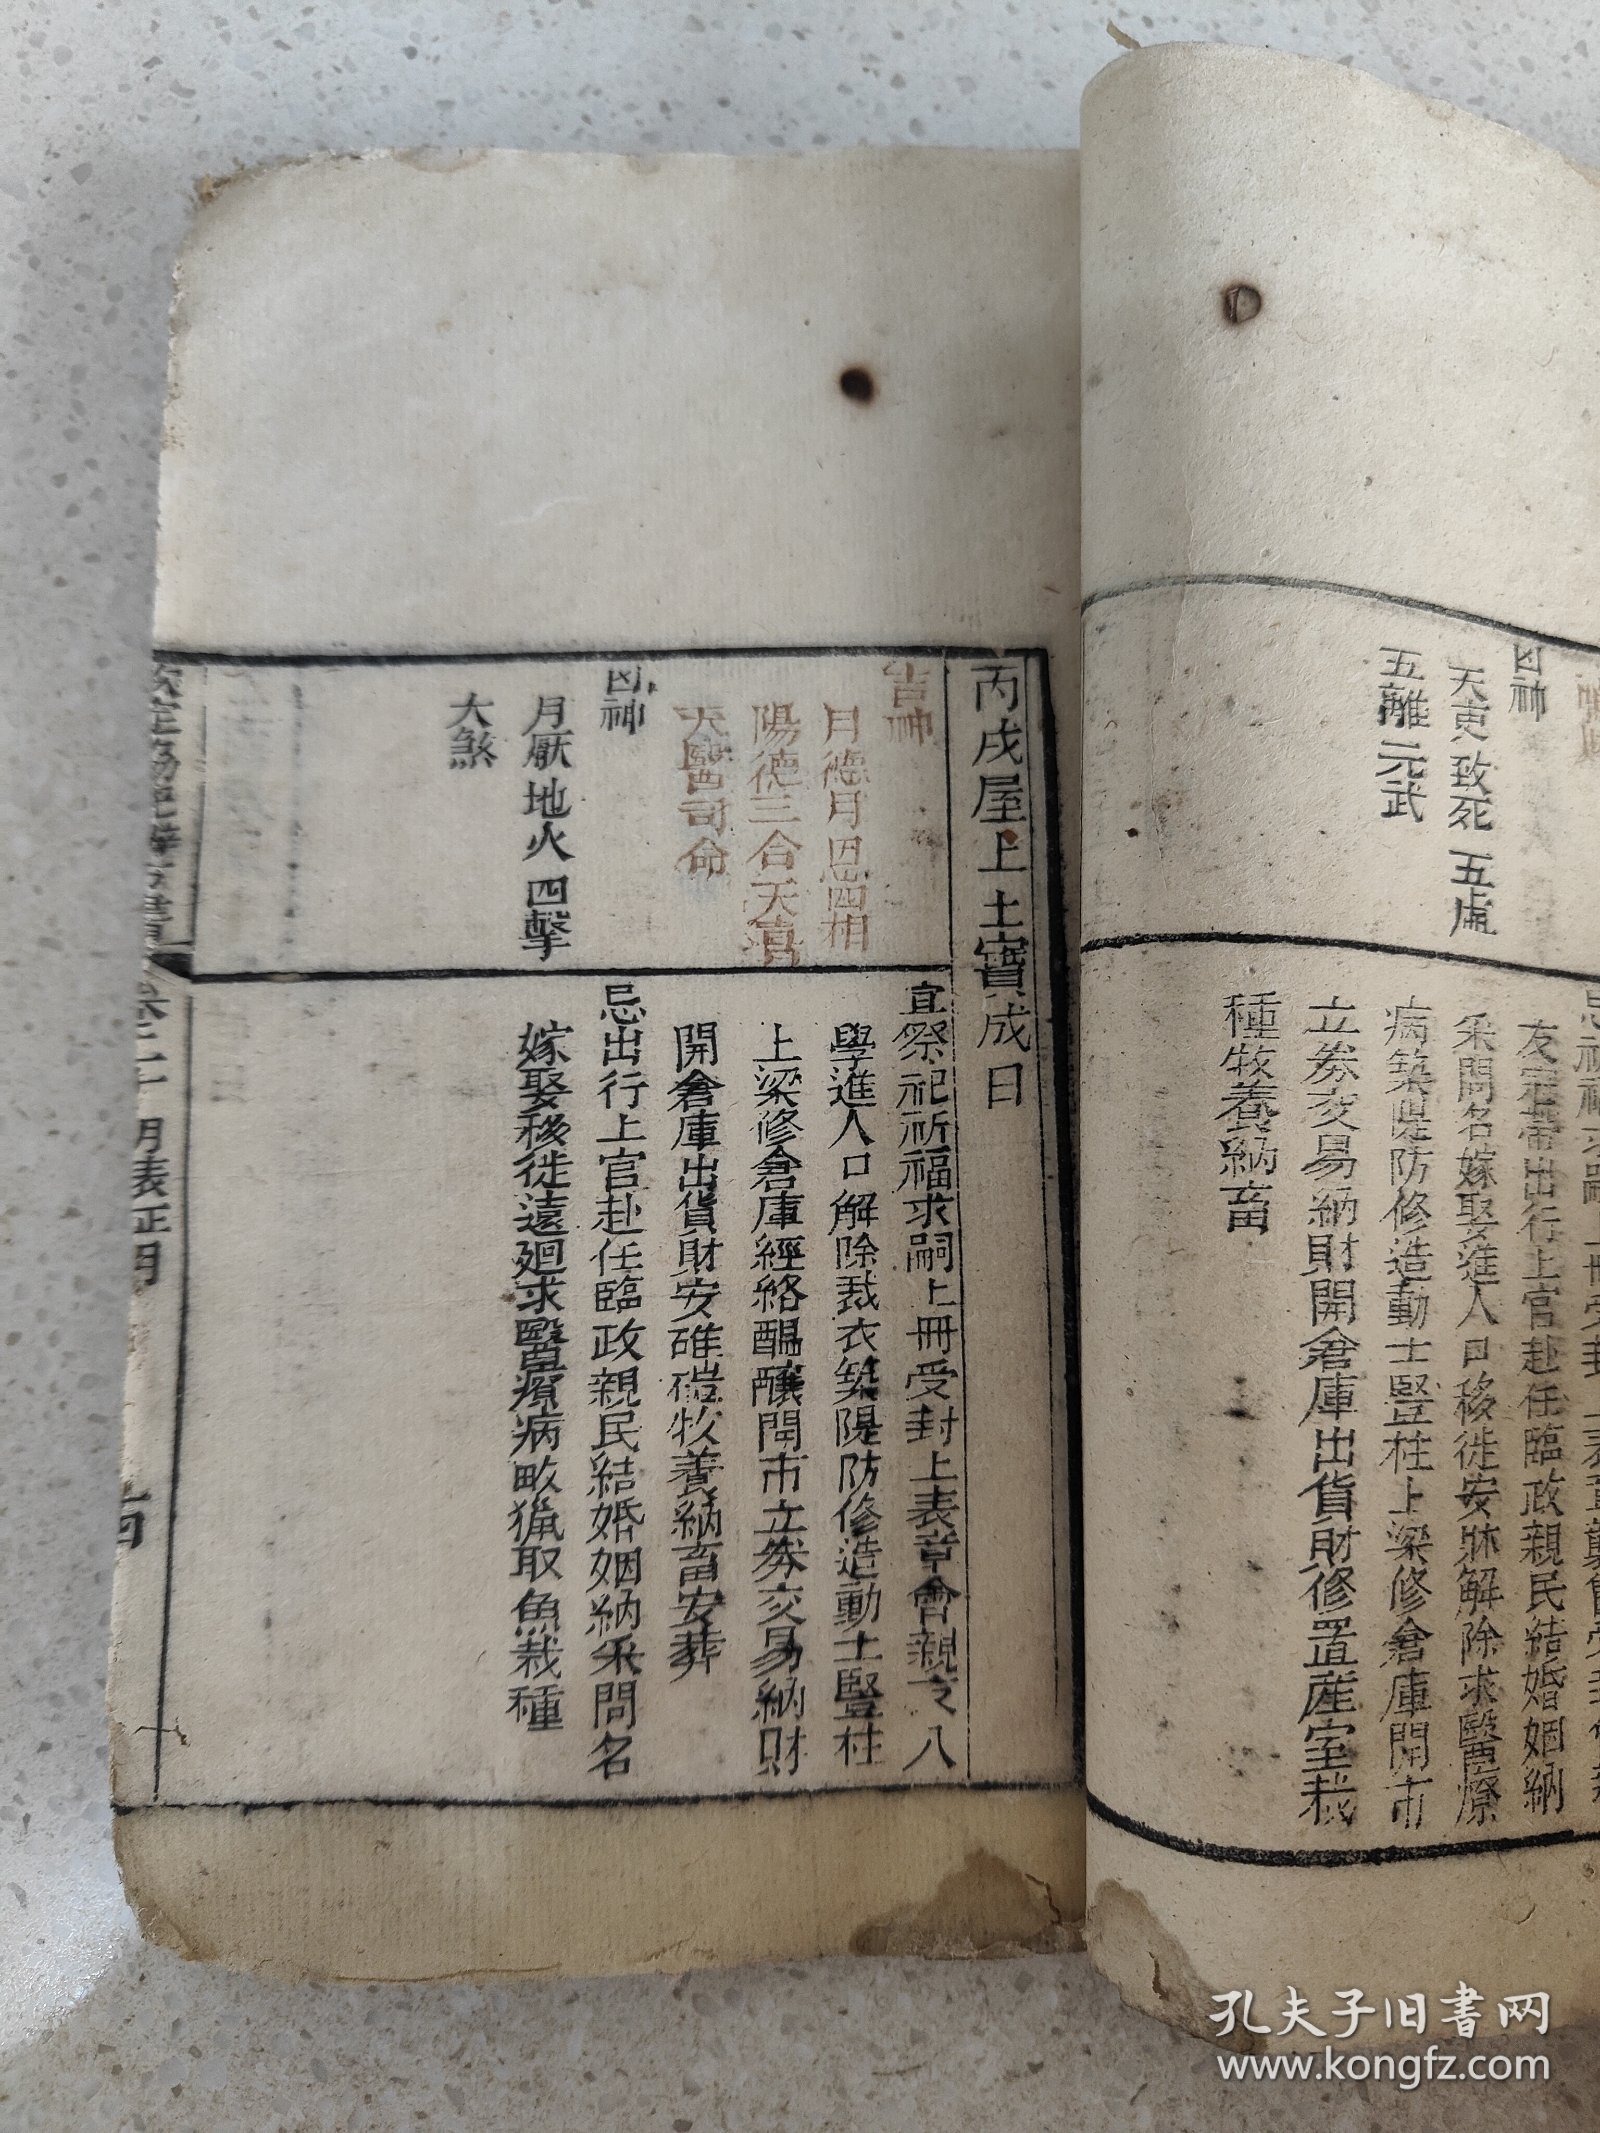 凶神
天吏 致死 五虛
五離 元武
友冠帶出行上官赴任臨政親民結婚姻納
采問名嫁娶進人口移徙安牀解除求醫療
病築隄防修造動土豎柱上梁修倉庫開市
立劵交易納財開倉庫出貨財修置産室栽
種牧養納畜
丙戌屋上土寶成日
吉神
月德月恩四相
陽德三合天喜
天醫司命
凶神
月厭地火 四擊
大煞
宜祭祀祈福求嗣上冊受封上表章會親友入
學進人口解除裁衣築隄防修造動土豎柱
上梁修倉庫經絡醞釀開市立劵交易納財
開倉庫出貨財安碓磑牧養納畜安葬
忌出行上官赴任臨政親民結婚姻納采問名
嫁娶移徙遠廻求醫療病畋獵取魚栽種
月表正月
孔夫子旧书网
www.kongfz.com